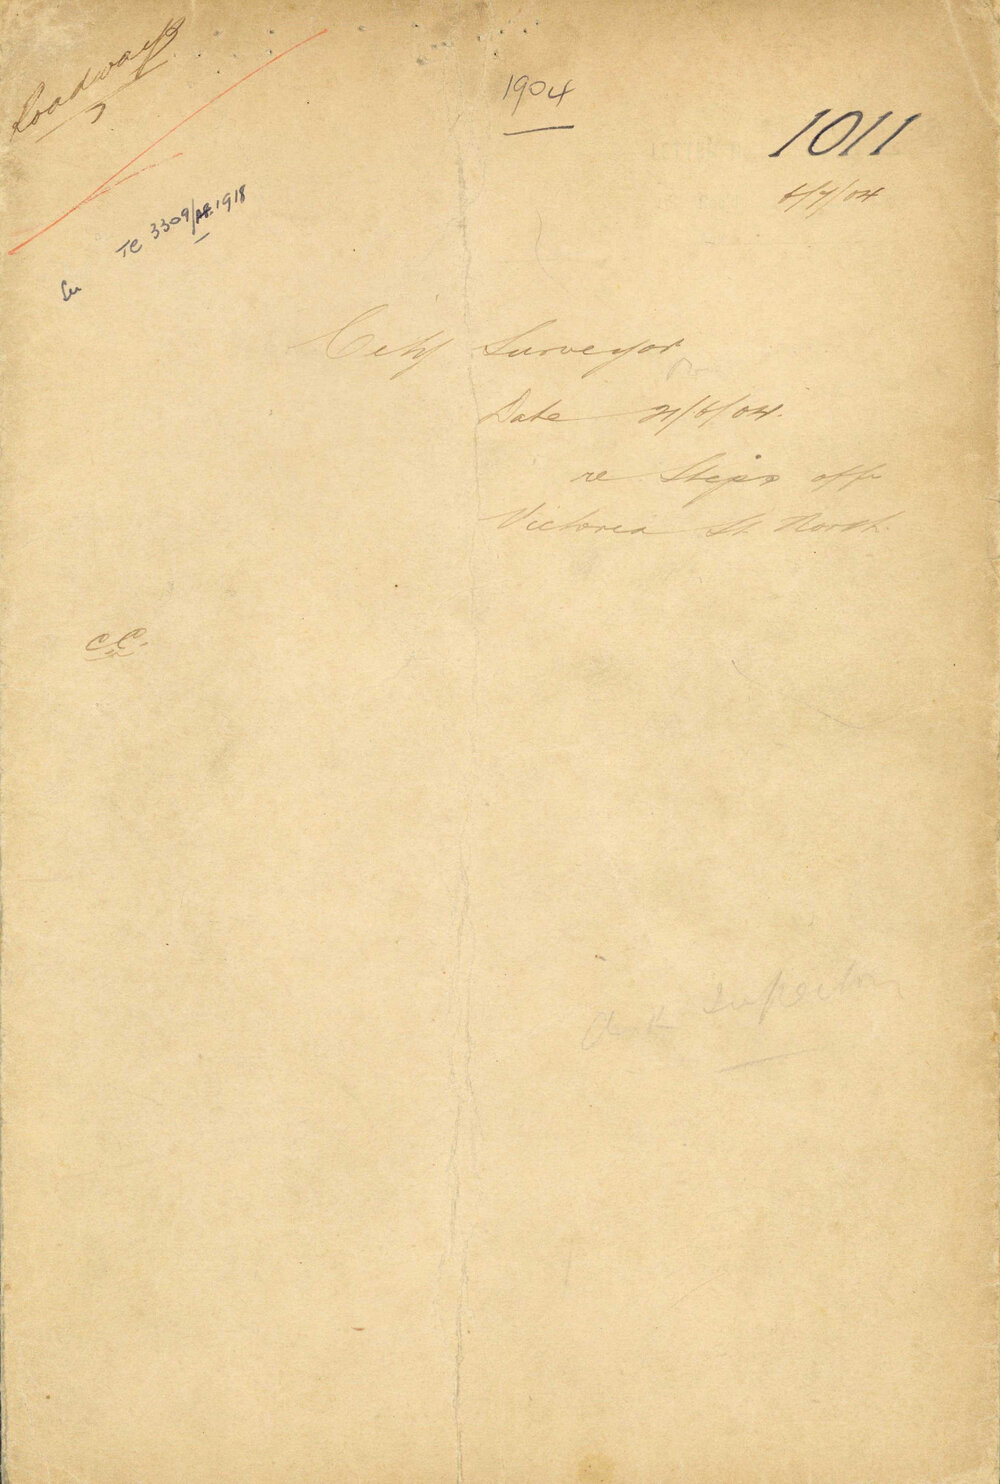 Roadways
1904
1011
6/7/04
Tc 3309/AF.1918
City Surveyor
Date 21/6/04.
re Steps off
Victoria St. North.
C.C.
Clerk Inspector